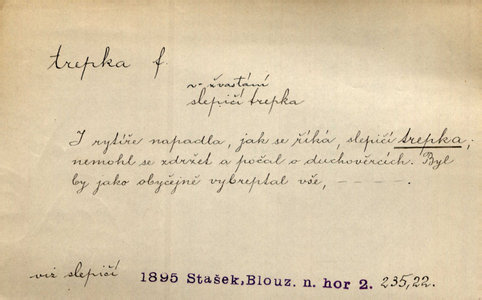 trepka f.
v. žvastání
slepičí trepka
I rytíře napadla, jak se říká, slepičí trepka;
nemohl se zdržet a počal o duchověrcích. Byl
by jako obyčejně vybreptal vše, – – – – .
viz slepičí 1895 Stašek, Blouz. n. hor 2. 235,22.